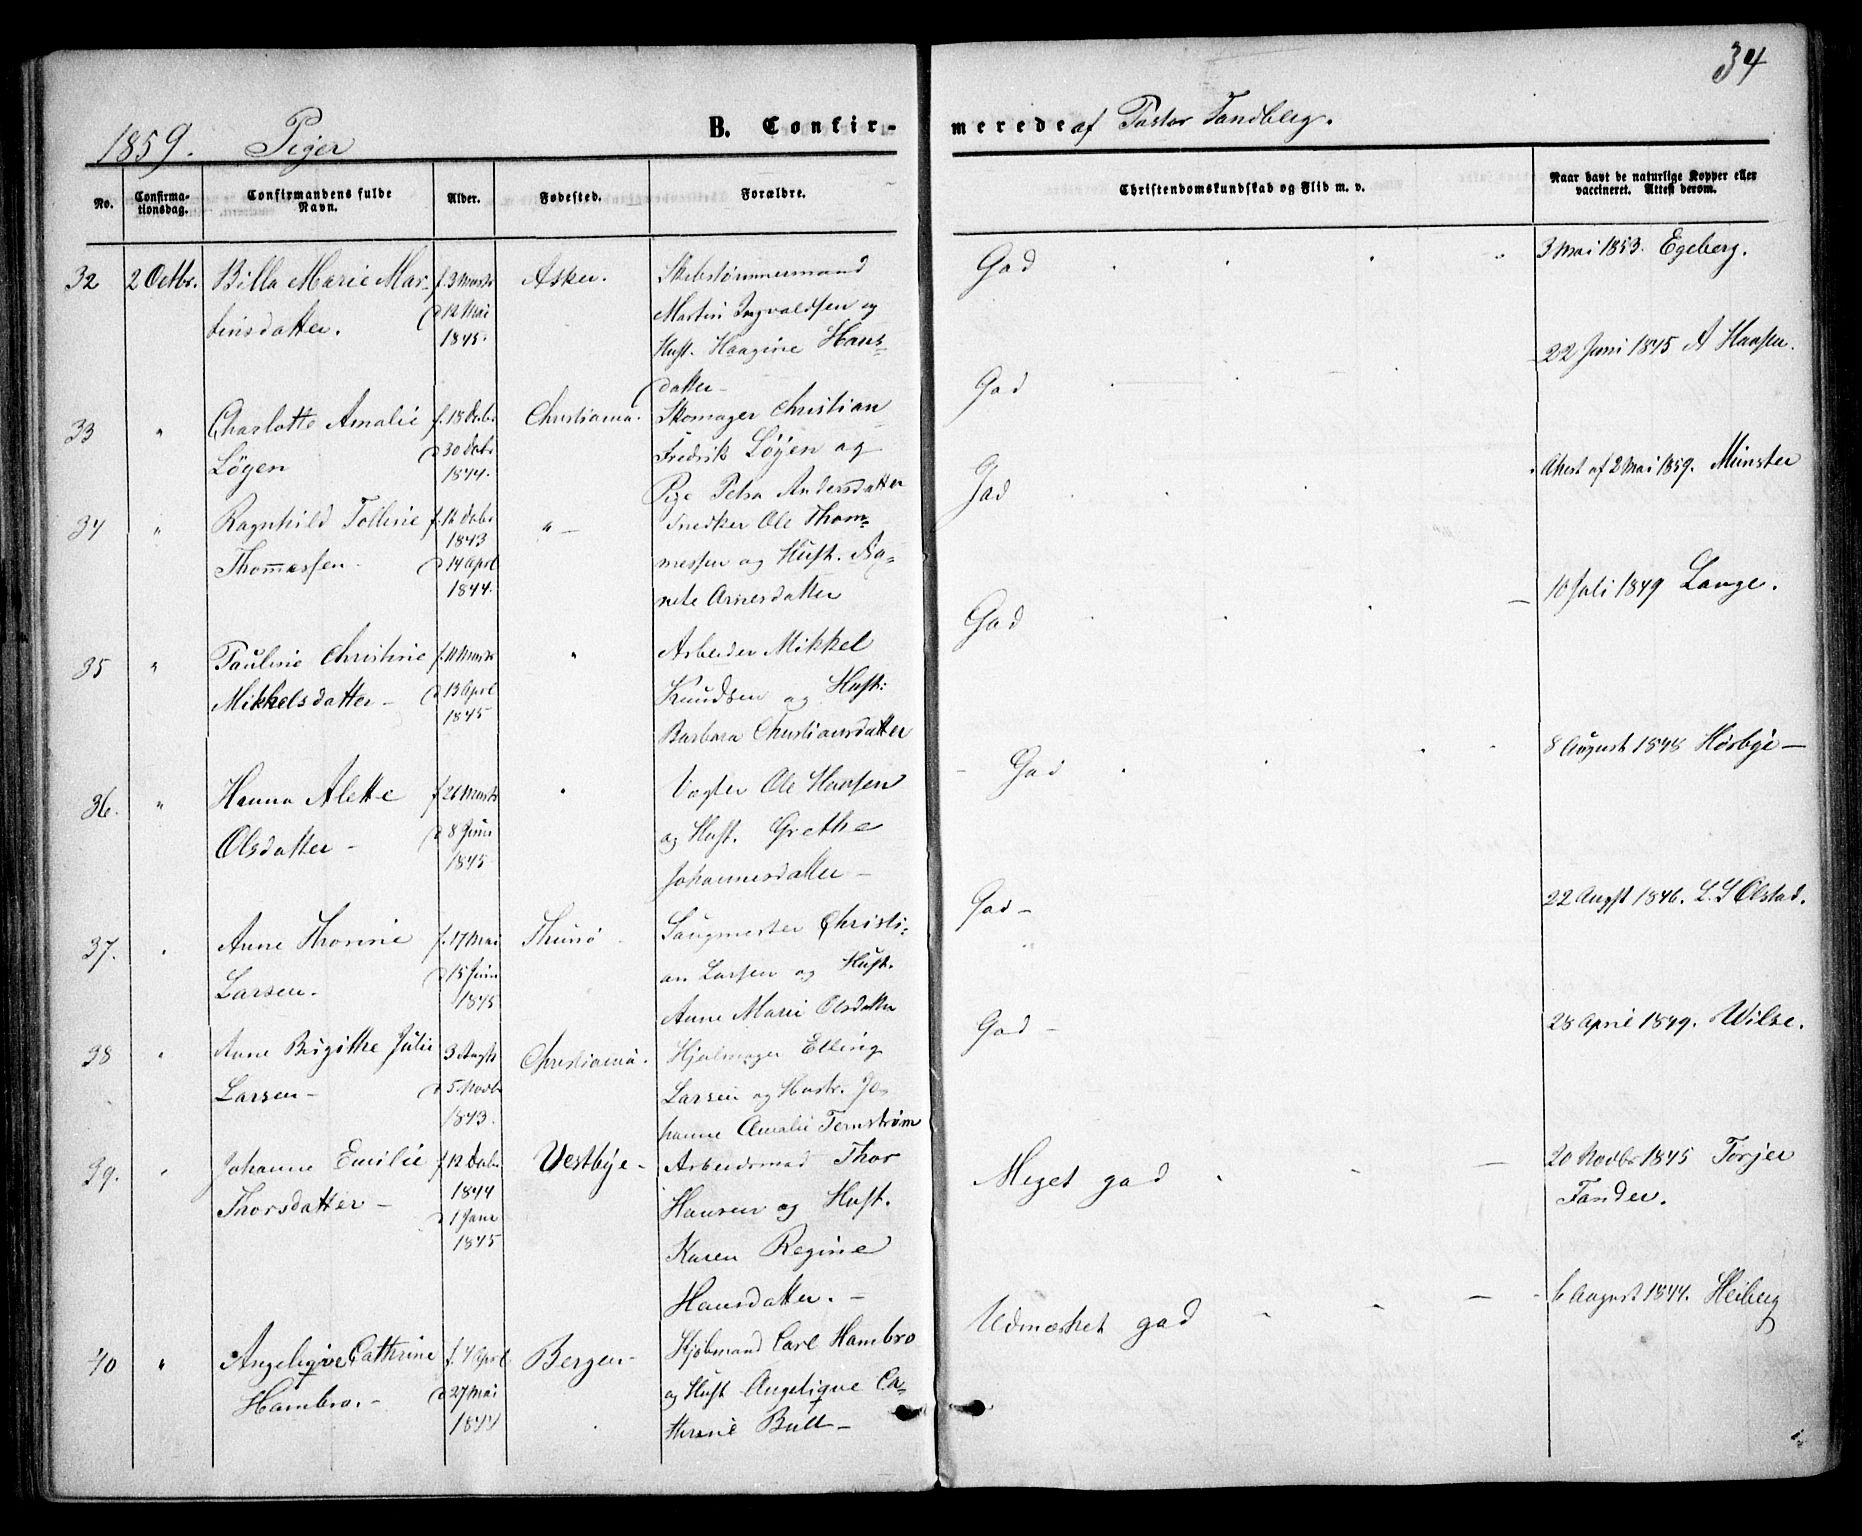 34
1859. Piger
B. Confir-
merede af Pastor Tandberg.
No.
Confirma-
tionsdag.
Confirmandens fulde
Navn.
Alder.
Fødested.
Forældre.
Christendomskundskab og Flid m. v.
Naar havt de naturlige Kopper eller
vaccineret. Attest derom.
32 2 Octbr. Billa Marie Mar-
tinsdatter.
f. 3 Marts
d 12 Mai
1845.
Asker.
Skibstømmermand
Martin Ingvaldsen og
Hust. Haagine Hans-
datter-
God
3 Mai 1853. Egeberg.
33 " Charlotte Amalie
Löyen
f. 18 Octbr
d 30 Decbr
1844.
Christiania.
Skomager Christian
Fredrik Löyen og
Pige Petra Andersdatter
God
22 Juni 1845 A Hansen.
34 " Ragnhild Tolline
Thomessen.
1843
d 14 Apr
1844.
" -
Snedker Ole Thom-
messen og Hust. Ag-
nete Arnesdatter
God
Attest af 2 Mai 1859. Münster
35 " Pauline Christine
Mikkelsdatter -
f. 11 Marts
d 13 Apr
1845
"
Arbeider Mikkel
Knudsen og Hust:
Barbara Christiansdatter
God
10 Juli 1849 Lange.
36. " Hanna Alette
Olsdatter -
f 26 Marts
d 8 Juni
1845
Vægter Ole Hansen
og Hust. Grethe
Johannesdatter -
God
8 August 1848 Hørbye -
37. " Anne Thorine
Larsen.
f. 17 Mai
d 15 Juni
1845
Thunø
Saugmester Christi-
an Larsen og Hust.
Anne Marie Olsdatter
God -
22 Augst 1846. L. S Olstad.
38 " Anne Birgithe Julie
Larsen -
3 Augst
d 5. Novbr
1843.
Christiania.
Hjulmager Elling
Larsen og Hustr. Jo-
hanne Amalie Ternstrøm
God -
28 April 1849. Wilse.
39. " Johanne Emilie
Thorsdatter -
f. 12 Decbr
1844
d 1 Janr
1845
Vestbye -
Arbeidsmad Thor
Hansen og Hust.
Karen Regine
Hansdatter. -
Meget god
20 Novbr 1845 Torjer
Tander.
40 " Angelique Cathrine
Hambro. -
f. 4 Apr
d 27 Mai
1844
Bergen -
Kjøbmand Carl Hambro
og Hust Angelique Ca-
thrine Bull -
Udmærket god
6 August 1844. Heiberg